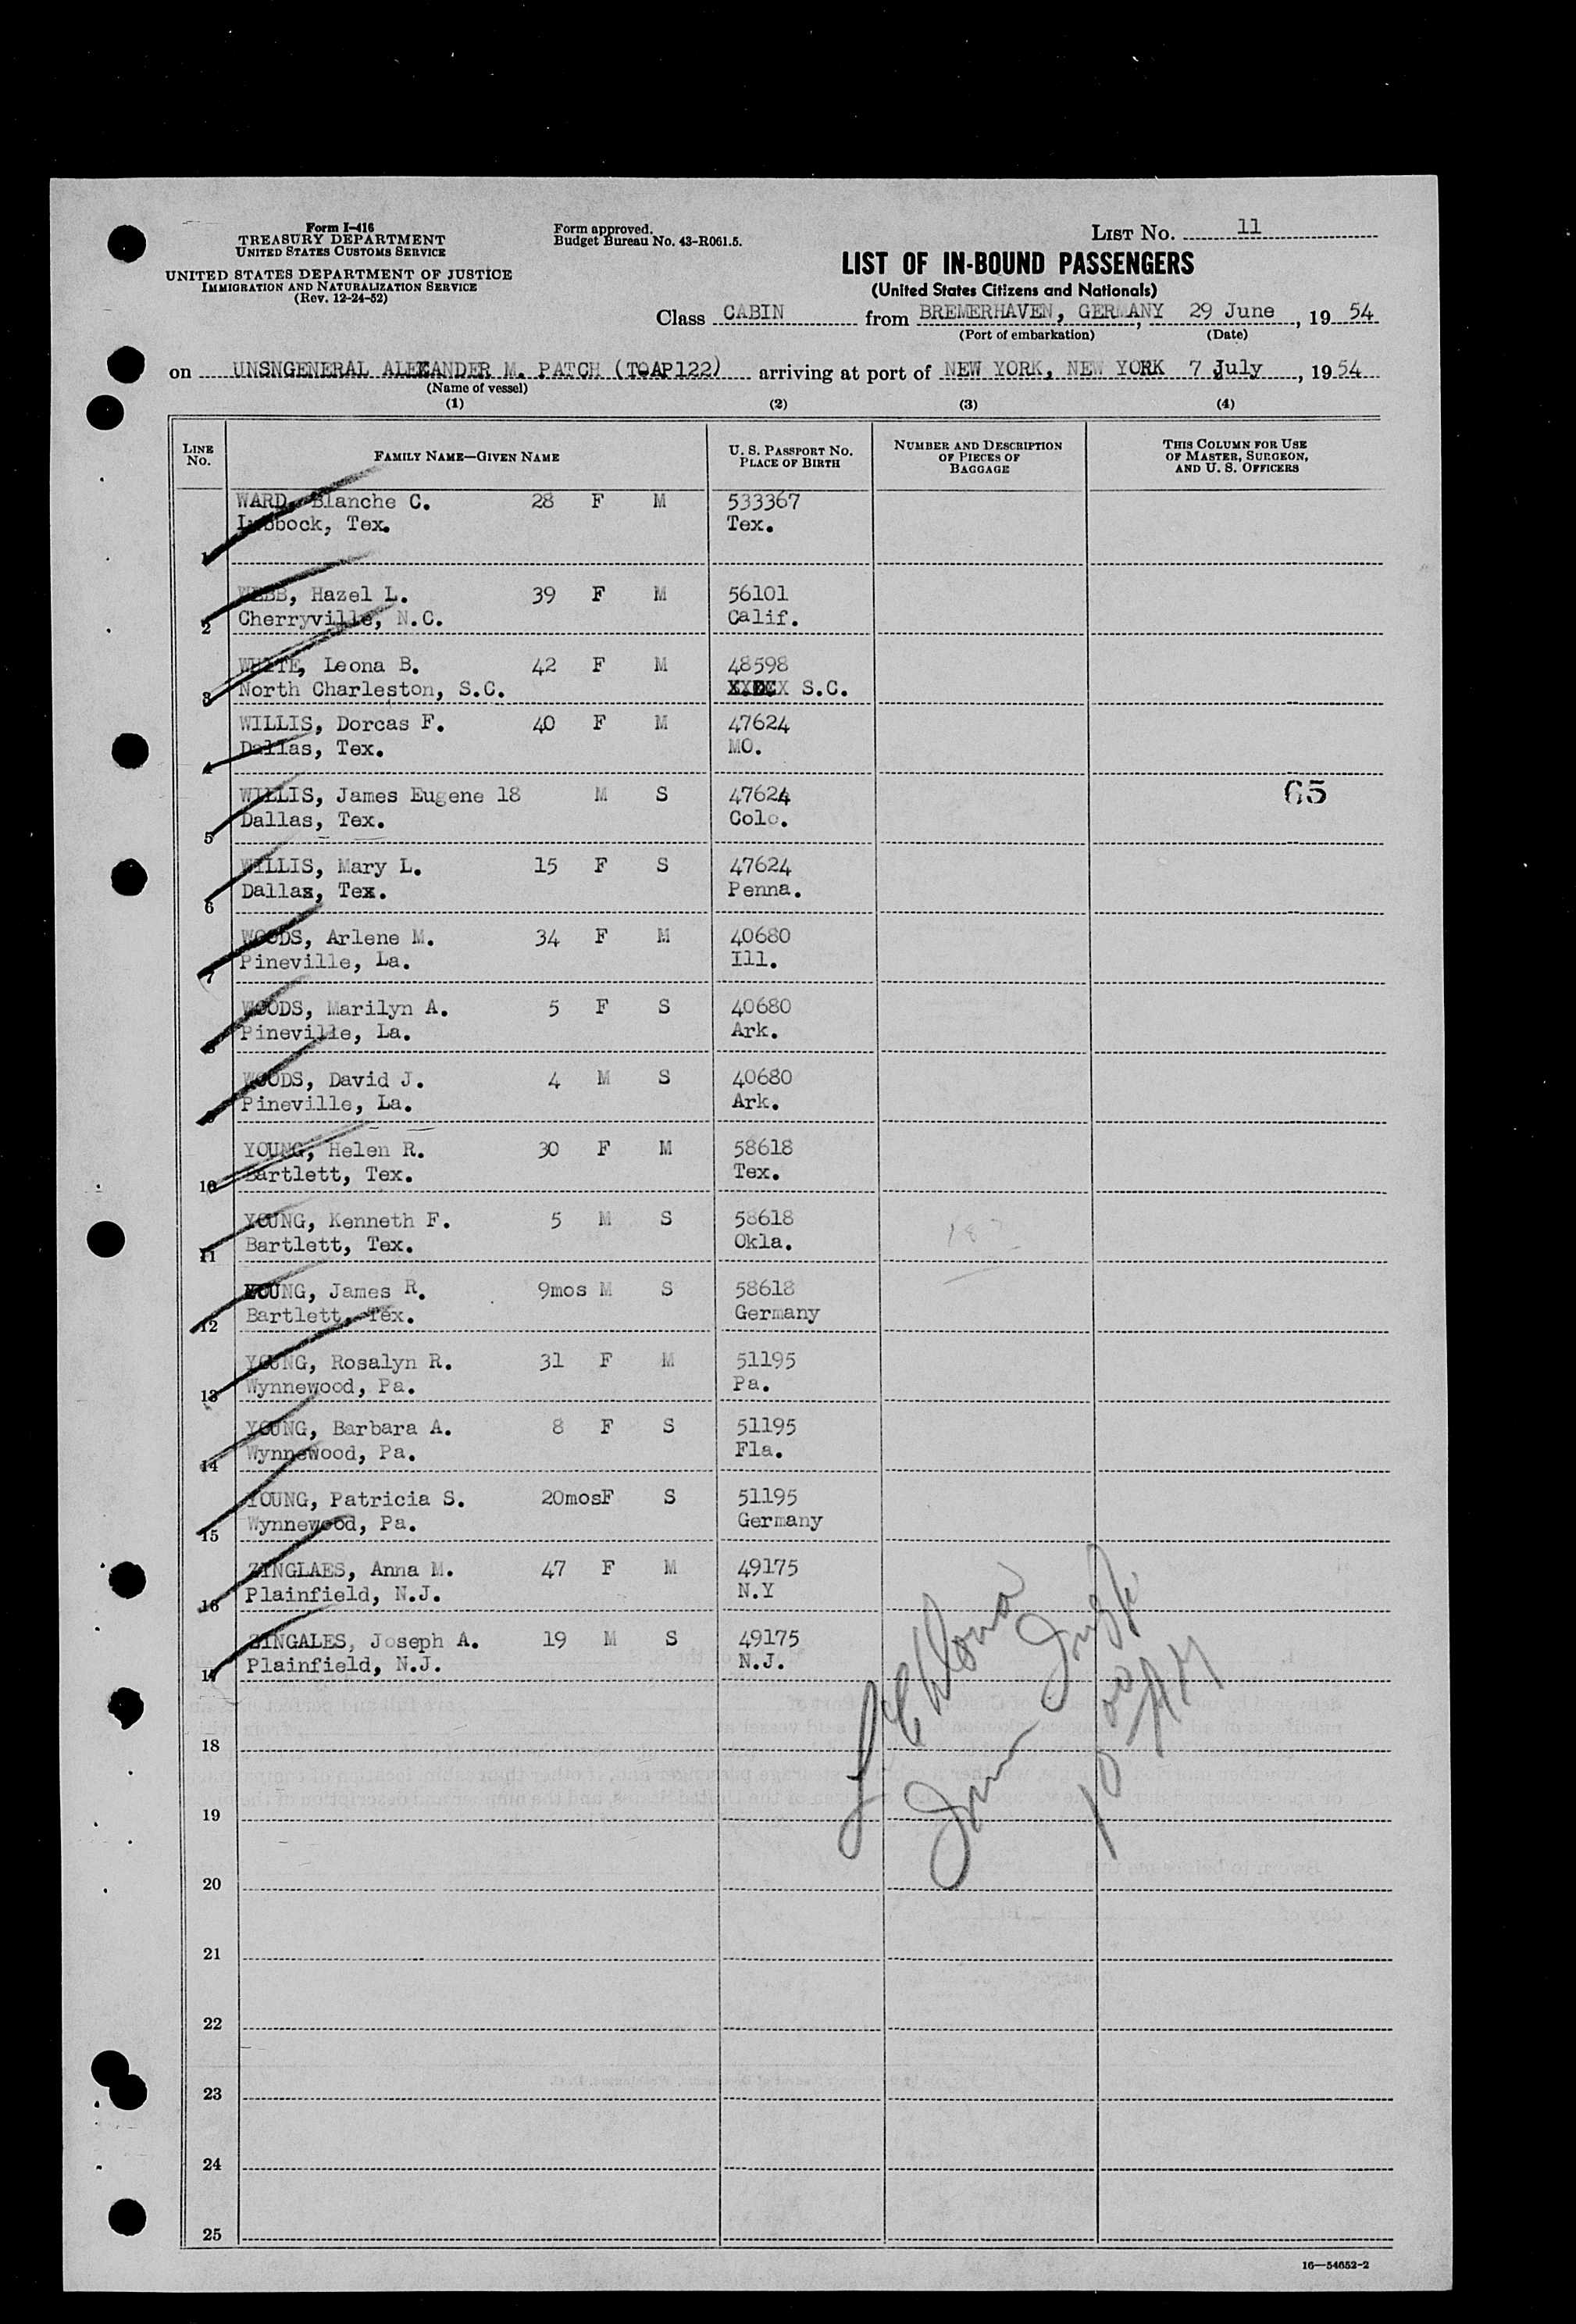 Form I-416
TREASURY DEPARTMENT
UNITED STATES CUSTOMS SERVICE
UNITED STATES DEPARTMENT OF JUSTICE
IMMIGRATION AND NATURALIZATION SERVICE
(Rev. 12-24-52)
Form approved.
Budget Bureau No. 43-R061.5.
LIST NO. 11
LIST OF IN-BOUND PASSENGERS
(United States Citizens and Nationals)
Class CABIN from BREMERHAVEN, GERMANY, 29 June, 1954
(Port of embarkation) (Date)
on UNSNGENERAL ALEXANDER M. PATCH (TOAP122) arriving at port of NEW YORK, NEW YORK 7 July, 1954
(Name of vessel)
(1) (2) (3) (4)
LINE NO. FAMILY NAME—GIVEN NAME U. S. PASSPORT NO. PLACE OF BIRTH NUMBER AND DESCRIPTION OF PIECES OF BAGGAGE THIS COLUMN FOR USE OF MASTER, SURGEON, AND U. S. OFFICERS
WARD, Blanche C. 28 F M 533367
Lubbock, Tex. Tex.
1
WEBB, Hazel L. 39 F M 56101
2 Cherryville, N.C. Calif.
WHITE, Leona B. 42 F M 48598
3 North Charleston, S.C. S.C.
WILLIS, Dorcas F. 40 F M 47624
4 Dallas, Tex. MO.
WILLIS, James Eugene 18 M S 47624 65
5 Dallas, Tex. Colo.
WILLIS, Mary L. 15 F S 47624
6 Dallas, Tex. Penna.
WOODS, Arlene M. 34 F M 40680
7 Pineville, La. Ill.
WOODS, Marilyn A. 5 F S 40680
8 Pineville, La. Ark.
WOODS, David J. 4 M S 40680
9 Pineville, La. Ark.
YOUNG, Helen R. 30 F M 58618
10 Bartlett, Tex. Tex.
YOUNG, Kenneth F. 5 M S 58618
11 Bartlett, Tex. Okla.
YOUNG, James R. 9mos M S 58618
12 Bartlett, Tex. Germany
YOUNG, Rosalyn R. 31 F M 51195
13 Wynnewood, Pa. Pa.
YOUNG, Barbara A. 8 F S 51195
14 Wynnewood, Pa. Fla.
YOUNG, Patricia S. 20mosF S 51195
15 Wynnewood, Pa. Germany
ZINGLAES, Anna M. 47 F M 49175
16 Plainfield, N.J. N.Y
ZINGALES, Joseph A. 19 M S 49175
17 Plainfield, N.J. N.J.
18
19
20
21
22
23
24
25
16—54652-2